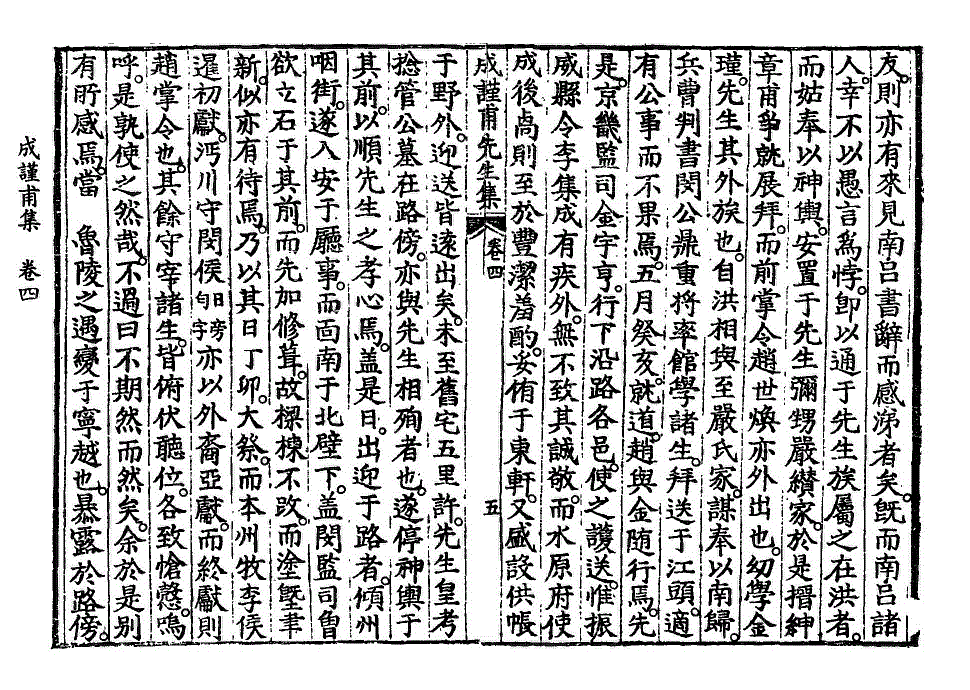 友。則亦有來見南呂書辭而感涕者矣。旣而南呂諸
人。幸不以愚言爲悖。卽以通于先生族屬之在洪者。
而姑奉以神輿。安置于先生彌甥嚴纉家。於是搢紳
章甫爭就展拜。而前掌令趙世煥亦外出也。幼學金
瑾。先生其外族也。自洪相與至嚴氏家。謀奉以南歸。
兵曹判書閔公鼎重將率館學諸生。拜送于江頭。適
有公事而不果焉。五月癸亥。就道。趙與金随行焉。先
是。京畿監司金宇亨。行下沿路各邑。使之護送。惟振
威縣令李集成有疾外。無不致其誠敬。而水原府使
成後卨則至於豐潔羞酌。妥侑于東軒。又盛設供帳
成謹甫先生集 卷四 五
于野外。迎送皆遠出矣。未至舊宅五里許。先生皇考
捴管公墓在路傍。亦與先生相殉者也。遂停神輿于
其前。以順先生之孝心焉。盖是日。出迎于路者。傾州
咽街。遂入安于廳事。而面南于北壁下。盖閔監司曾
欲立石于其前。而先加修葺。故樑棟不改。而塗墍聿
新。似亦有待焉。乃以其日丁卯。大祭。而本州牧李侯
暹初獻。沔川守閔侯日傍旬字亦以外裔亞獻。而終獻則
趙掌令也。其餘守宰諸生。皆俯伏聽位。各致愴慤。嗚
呼。是孰使之然哉。不過曰不期然而然矣。余於是別
有所感焉。當 魯陵之遇變于寧越也。暴露於路傍。
成謹甫集 卷四